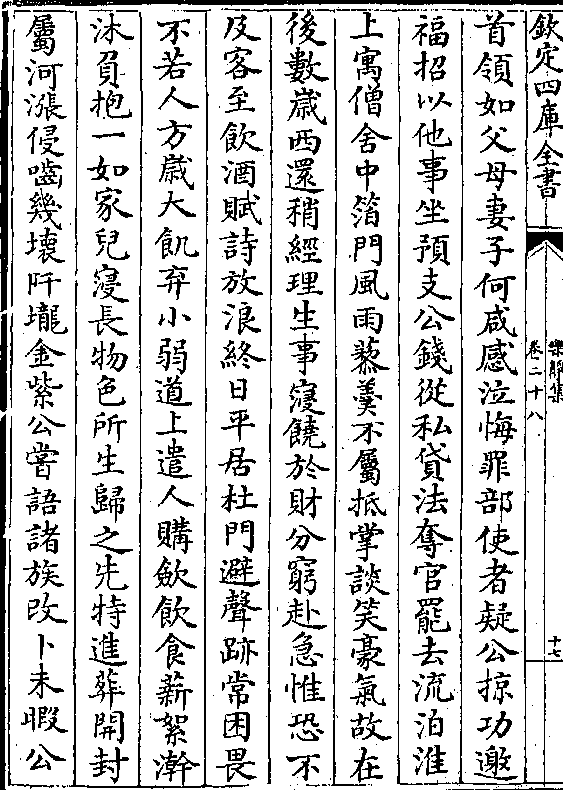 欽定四庫全書
樂靜集
卷二十八
十七
首領如父母妻子何咸感泣悔罪部使者疑公掠功邀
福招以他事坐預支公錢從私貸法奪官罷去流泊淮
上寓僧舍中箔門風雨藜羹不屬抵掌談笑豪氣故在
後數嵗西還稍經理生事寖饒於財分窮赴急惟恐不
及客至飲酒賦詩放浪終日平居杜門避聲跡常困畏
不若人方嵗大飢弃小弱道上遣人購斂飲食薪絮澣
沐負抱一如家兒寖長物色所生歸之先特進葬開封
屬河漲侵嚙幾壞阡壠金紫公嘗語諸族改卜未暇公